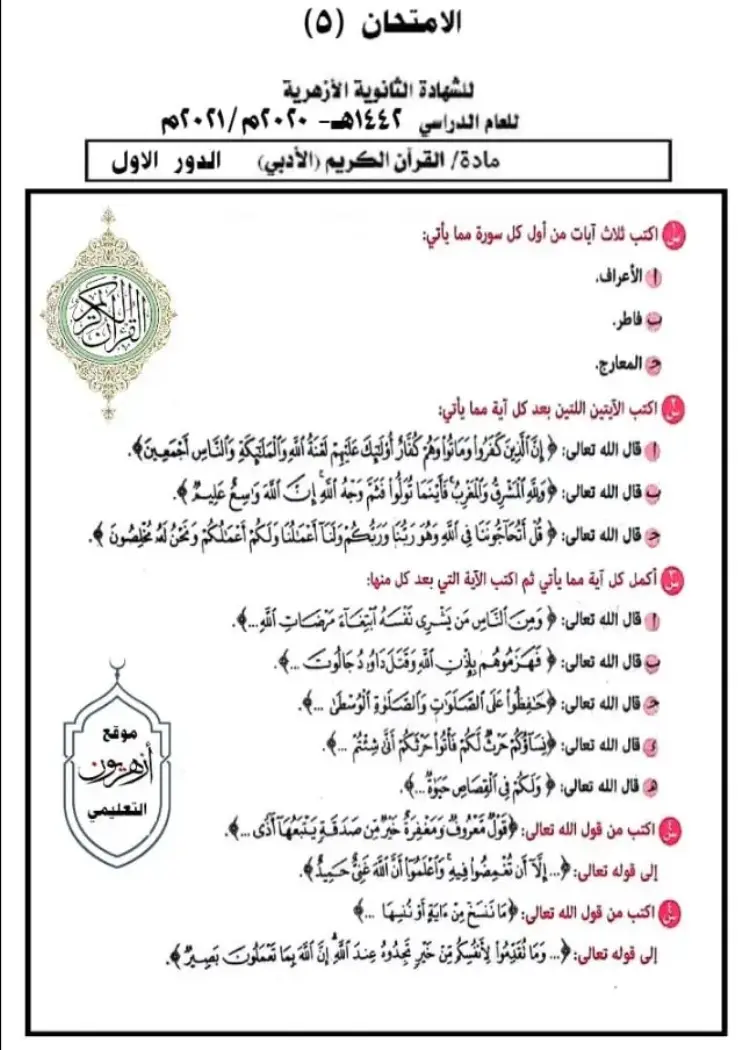 الامتحان (٥)
للشهادة الثانوية الأزهرية
للعام الدراسي ١٤٤٢هـ - ٢٠٢٠م/٢٠٢١م
مادة/ القرآن الكريم (الأدبي) الدور الاول
القرآن الكريم
س١ اكتب ثلاث آيات من أول كل سورة مما يأتي:
أ الأعراف.
ب فاطر.
ج المعارج.
س٢ اكتب الآيتين اللتين بعد كل آية مما يأتي:
أ قال الله تعالى: ﴿إِنَّ ٱلَّذِينَ كَفَرُوا۟ وَمَاتُوا۟ وَهُمْ كُفَّارٌ أُو۟لَـٰٓئِكَ عَلَيْهِمْ لَعْنَةُ ٱللَّهِ وَٱلْمَلَـٰٓئِكَةِ وَٱلنَّاسِ أَجْمَعِينَ﴾.
ب قال الله تعالى: ﴿وَلِلَّهِ ٱلْمَشْرِقُ وَٱلْمَغْرِبُ ۚ فَأَيْنَمَا تُوَلُّوا۟ فَثَمَّ وَجْهُ ٱللَّهِ ۚ إِنَّ ٱللَّهَ وَٰسِعٌ عَلِيمٌ﴾.
ج قال الله تعالى: ﴿قُلْ أَتُحَآجُّونَنَا فِى ٱللَّهِ وَهُوَ رَبُّنَا وَرَبُّكُمْ وَلَنَآ أَعْمَـٰلُنَا وَلَكُمْ أَعْمَـٰلُكُمْ وَنَحْنُ لَهُۥ مُخْلِصُونَ﴾.
س٣ أكمل كل آية مما يأتي ثم اكتب الآية التي بعد كل منها:
أ قال الله تعالى: ﴿وَمِنَ ٱلنَّاسِ مَن يَشْرِى نَفْسَهُ ٱبْتِغَآءَ مَرْضَاتِ ٱللَّهِ...﴾.
ب قال الله تعالى: ﴿فَهَزَمُوهُم بِإِذْنِ ٱللَّهِ وَقَتَلَ دَاوُۥدُ جَالُوتَ ...﴾.
ج قال الله تعالى: ﴿حَـٰفِظُوا۟ عَلَى ٱلصَّلَوَٰتِ وَٱلصَّلَوٰةِ ٱلْوُسْطَىٰ ...﴾.
د قال الله تعالى: ﴿نِسَآؤُكُمْ حَرْثٌ لَّكُمْ فَأْتُوا۟ حَرْثَكُمْ أَنَّىٰ شِئْتُمْ ...﴾.
هـ قال الله تعالى: ﴿وَلَكُمْ فِى ٱلْقِصَاصِ حَيَوٰةٌ ...﴾.
س٤ اكتب من قول الله تعالى: ﴿قَوْلٌ مَّعْرُوفٌ وَمَغْفِرَةٌ خَيْرٌ مِّن صَدَقَةٍ يَتْبَعُهَآ أَذًى ...﴾.
إلى قوله تعالى: ﴿... إِلَّآ أَن تُغْمِضُوا۟ فِيهِ ۚ وَٱعْلَمُوٓا۟ أَنَّ ٱللَّهَ غَنِىٌّ حَمِيدٌ﴾.
س٤ اكتب من قول الله تعالى: ﴿مَا نَنسَخْ مِنْ ءَايَةٍ أَوْ نُنسِهَا ...﴾
إلى قوله تعالى: ﴿... وَمَا تُقَدِّمُوا۟ لِأَنفُسِكُم مِّنْ خَيْرٍ تَجِدُوهُ عِندَ ٱللَّهِ ۗ إِنَّ ٱللَّهَ بِمَا تَعْمَلُونَ بَصِيرٌ﴾.
موقع
أزهريون
التعليمي